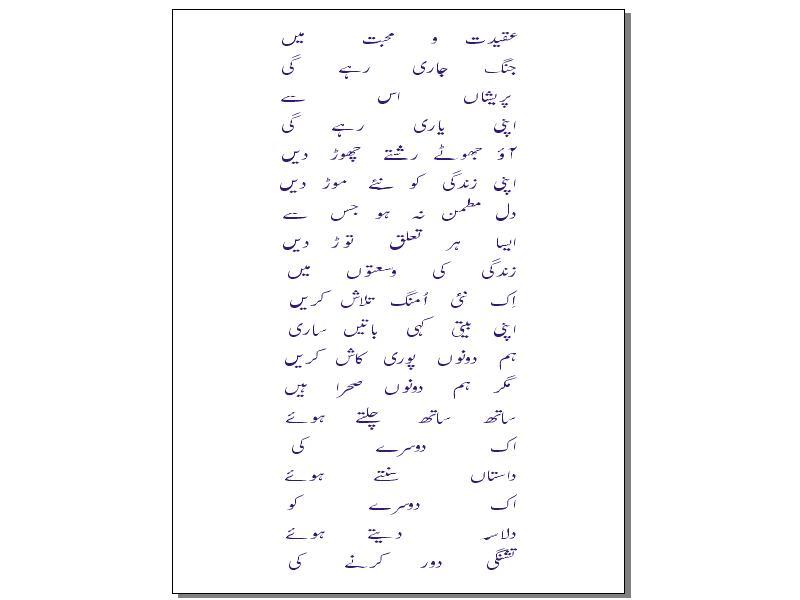 عقیدت و محبت میں
جنگ جاری رہے گی
پریشاں اس سے
اپنی یاری رہے گی
آؤ جھوٹے رشتے چھوڑ دیں
اپنی زندگی کو نئے موڑ دیں
دل مطمن نہ ہو جس سے
ایسا ہر تعلق توڑ دیں
زندگی کی وسعتوں میں
اِک نئی اُمنگ تلاش کریں
اپنی بیتی کہی باتیں ساری
ہم دونوں پوری کاش کریں
مگر ہم دونوں صحرا میں
ساتھ ساتھ چلتے ہوئے
اک دوسرے کی
داستاں سنتے ہوئے
اک دوسرے کو
دلاسہ دیتے ہوئے
تشنگی دور کرنے کی